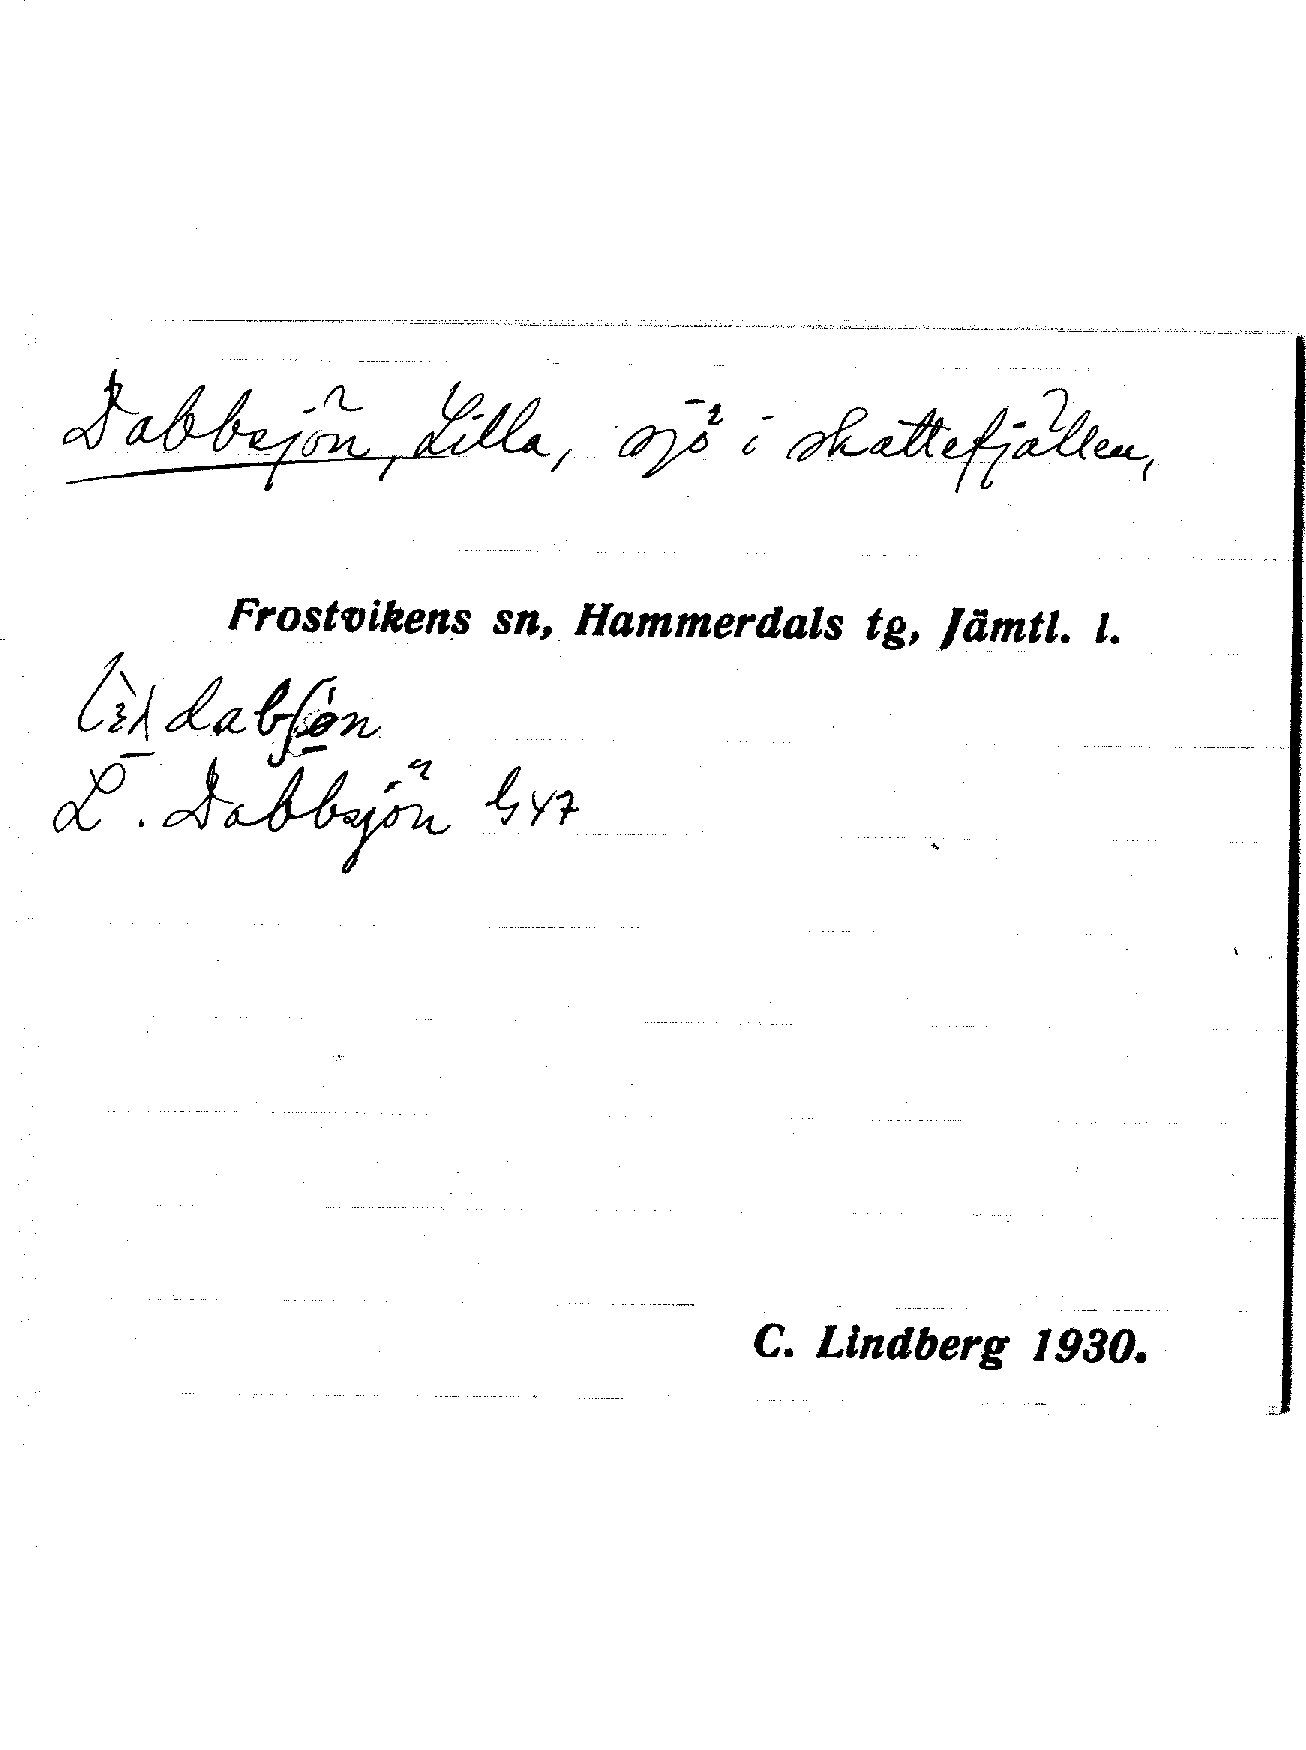 Dabbsjön, Lilla, sjö i skattefjällen,
Frostvikens sn, Hammerdals tg, Jämtl. l.
L. Dabbsjön G 47
C. Lindberg 1930.